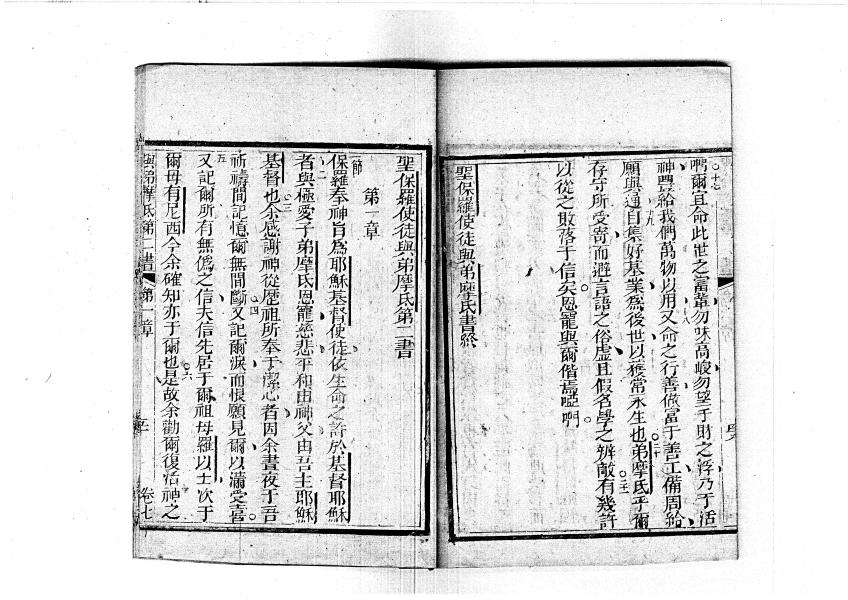 啊爾宜命此世之富輩勿味高峻勿望于財之浮乃于活
神豐給我們萬物以用又命之行善做富于善工備周給
願與通自集好基業為後世以獲常永生也弟摩氏乎爾
存守所受寄而避言語之俗虛且假名學之辨敵有幾許
以從之敗落于信矣恩寵與爾偕焉啞啊
聖保羅使徒與弟摩氏書終
聖保羅使徒與弟摩氏第二書
第一章
一節 保羅奉神旨為耶穌基督使徒依生命之許於基督耶穌
二 者與極愛子弟摩氏恩寵慈悲平和由神父由吾主耶穌
基督也三余感謝神從歷祖所奉于潔心者因余晝夜于吾
祈禱間記憶爾無間斷四又記爾淚而恨願見爾以滿受喜
五 又記爾所有無偽之信夫信先居于爾祖母羅以士次于
爾母有尼西今余確知亦于爾也六是故余勸爾復活神之
與弟摩氏第二書 第一章 卷七